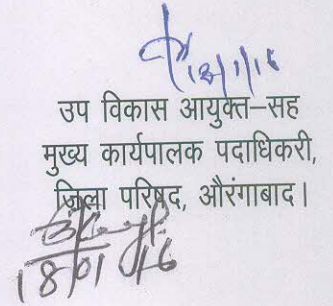 18/1/16
उप विकास आयुक्त–सह
मुख्य कार्यपालक पदाधिकरी,
जिला परिषद, औरंगाबाद।
18/01/16